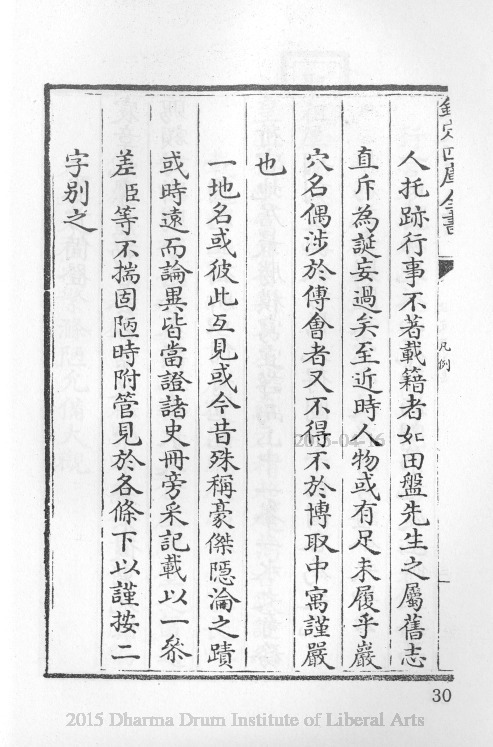 欽定四庫全書
凡例
人托跡行事不著載籍者如田盤先生之屬舊志
直斥為誕妄過矣至近時人物或有足未履乎巖
穴名偶涉於傳會者又不得不於博取中寓謹嚴
也
一地名或彼此互見或今昔殊稱豪傑隱淪之蹟
或時遠而論異皆當證諸史冊旁采記載以一叅
差臣等不揣固陋時附管見於各條下以謹按二
字別之
2015-04-16
30
2015 Dharma Drum Institute of Liberal Arts